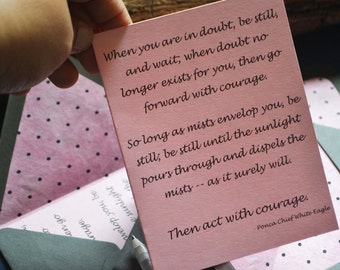 When you are in doubt, be still,
and wait; when doubt no
longer exists for you, then go
forward with courage.
So long as mists envelop you, be
still; be still until the sunlight
pours through and dispels the
mists -- as it surely will.
Then act with courage.
Ponca Chief White Eagle